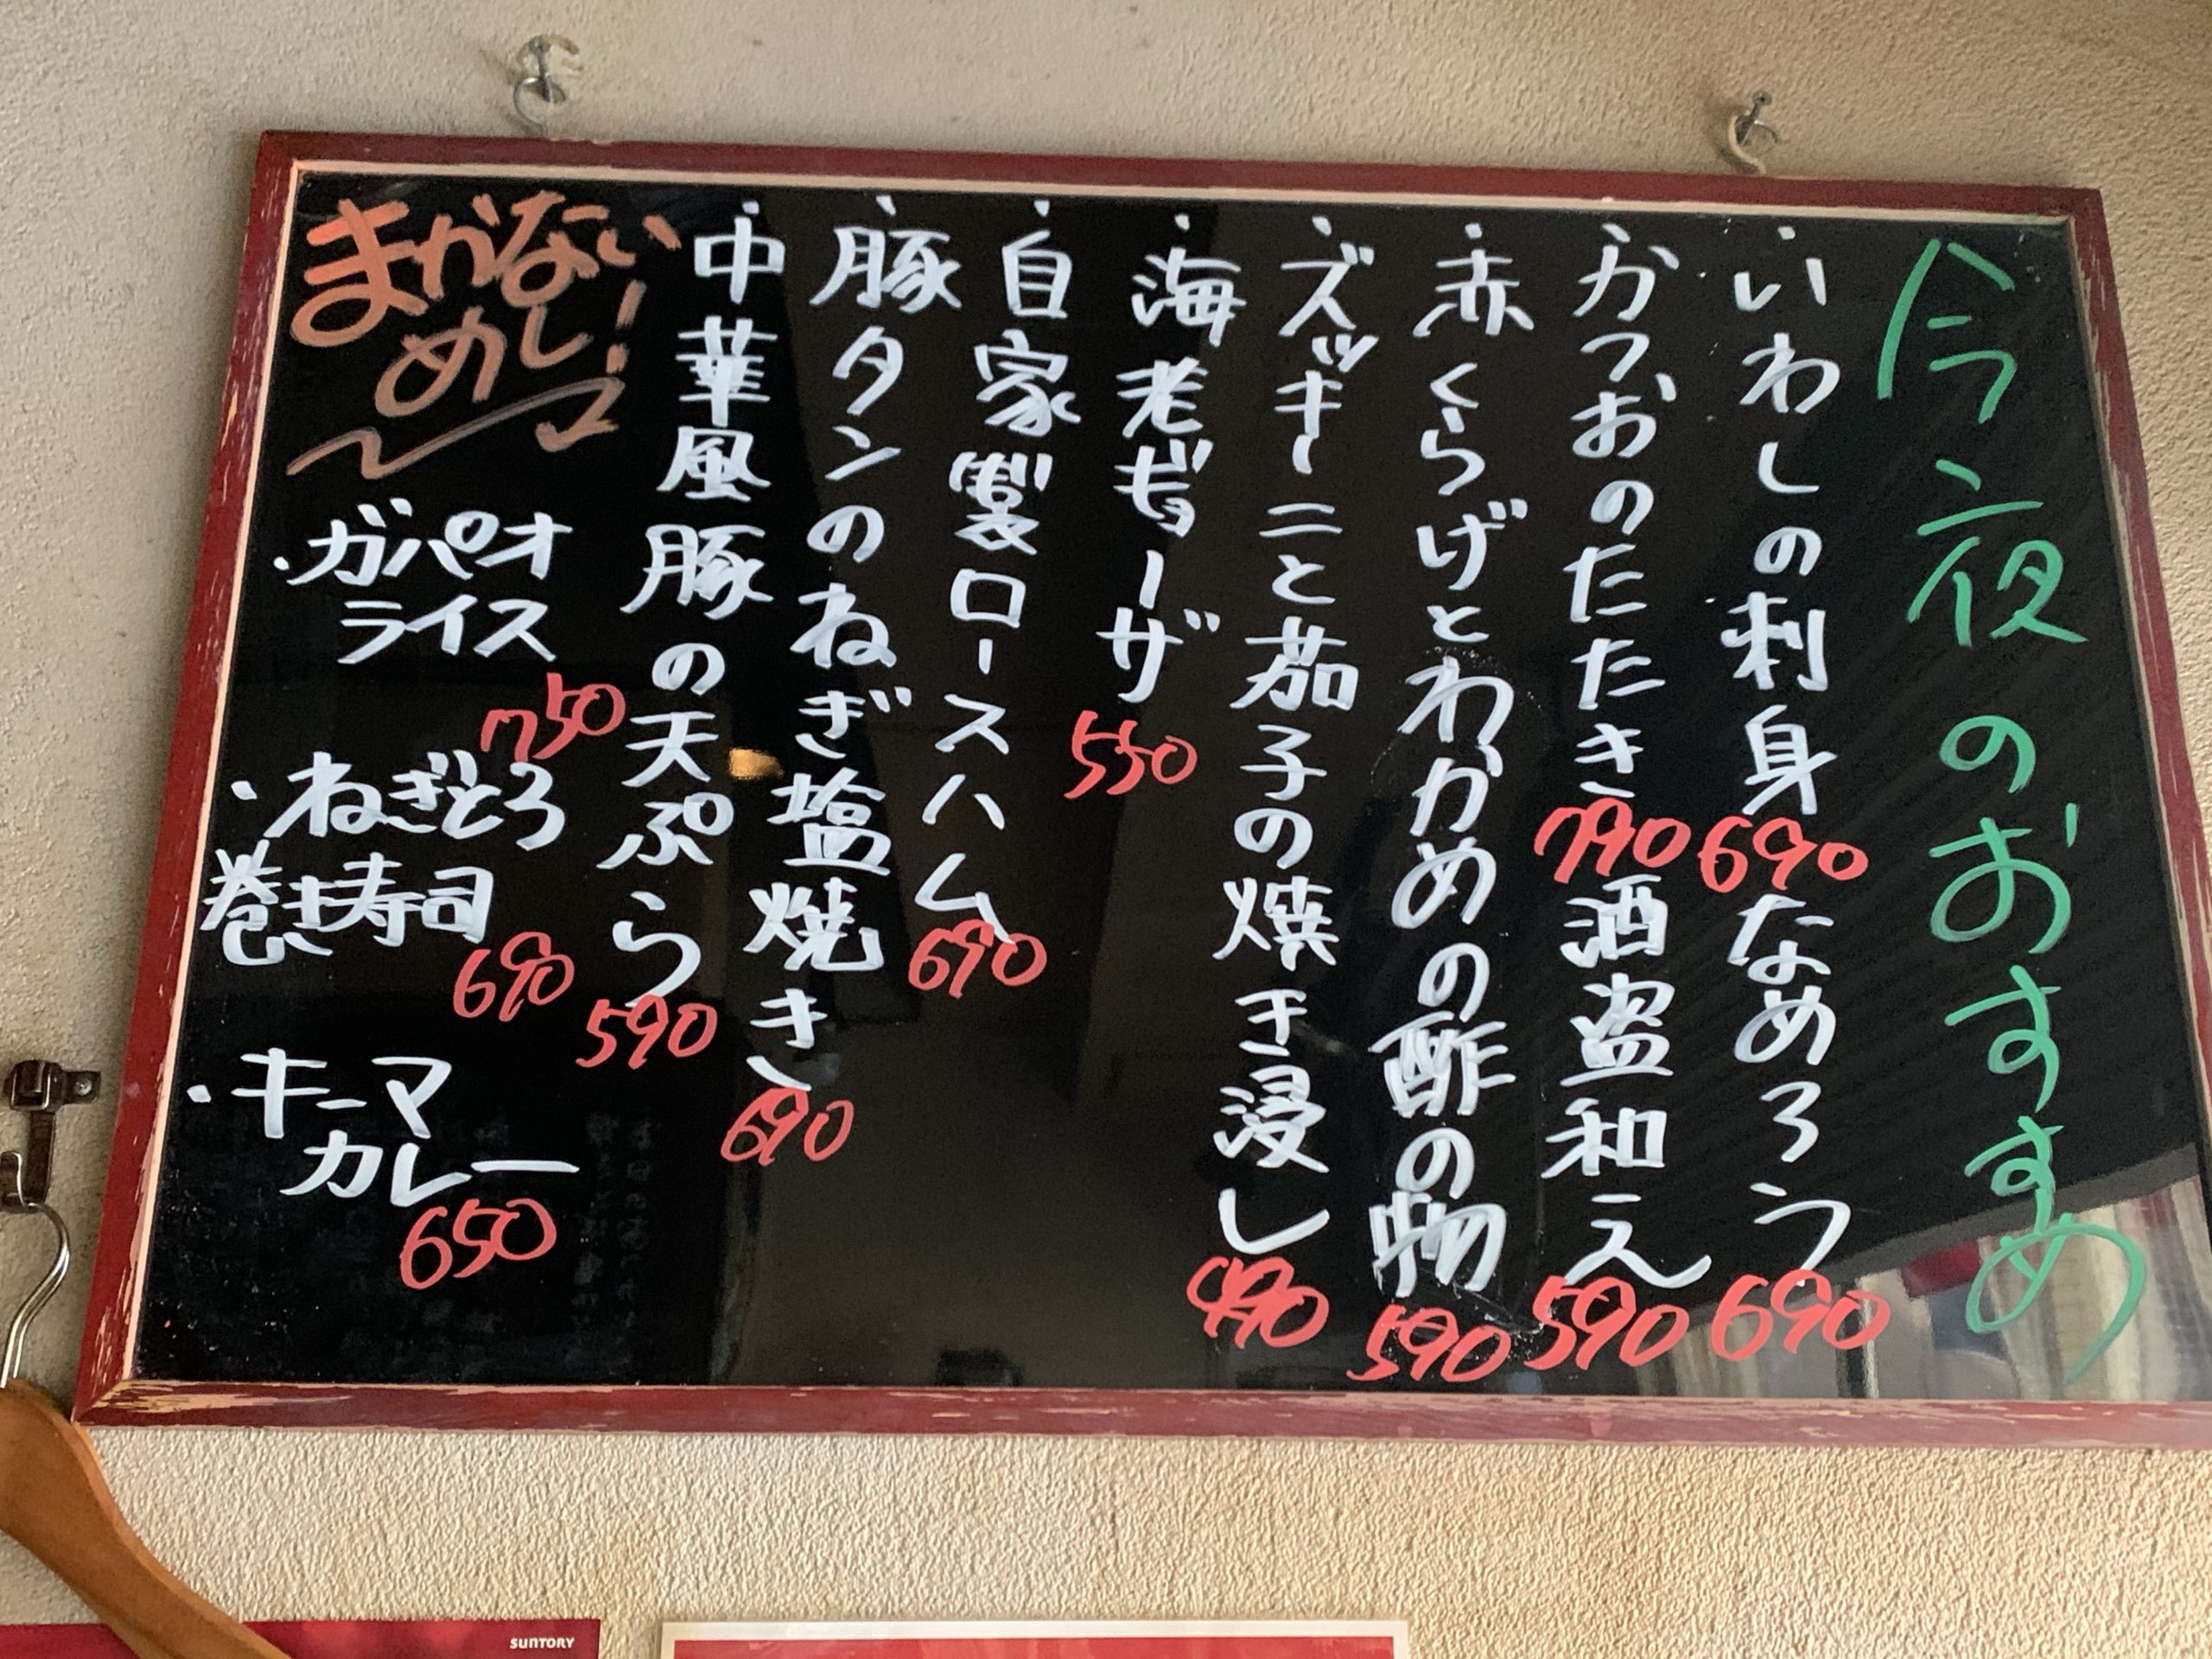 今夜のおすすめ
・いわしの刺身690 なめろう690
・かつおのたたき790 酒盗和え590
・赤くらげとわかめの酢の物590
・ズッキーニと茄子の焼き浸し490
・海老ギョーザ550
・自家製ロースハム690
・豚タンのねぎ塩焼き690
・中華風豚の天ぷら590
まかない
めし!
・ガパオ
ライス
750
・ねぎとろ
巻き寿司
690
・キーマ
カレー
650
SUNTORY